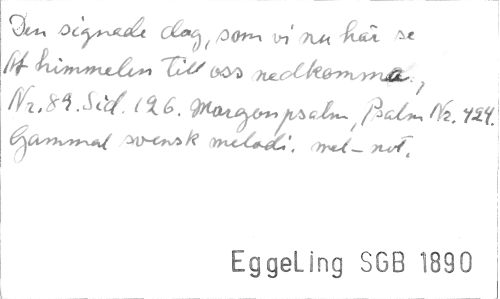 Den signade dag, som vi nu här se
Af himmelen till oss nedkomma,
Nr. 89. Sid. 126. Morgonpsalm, Psalm Nr. 424.
Gammal svensk melodi. mel-not.
EggeLing SGB 1890